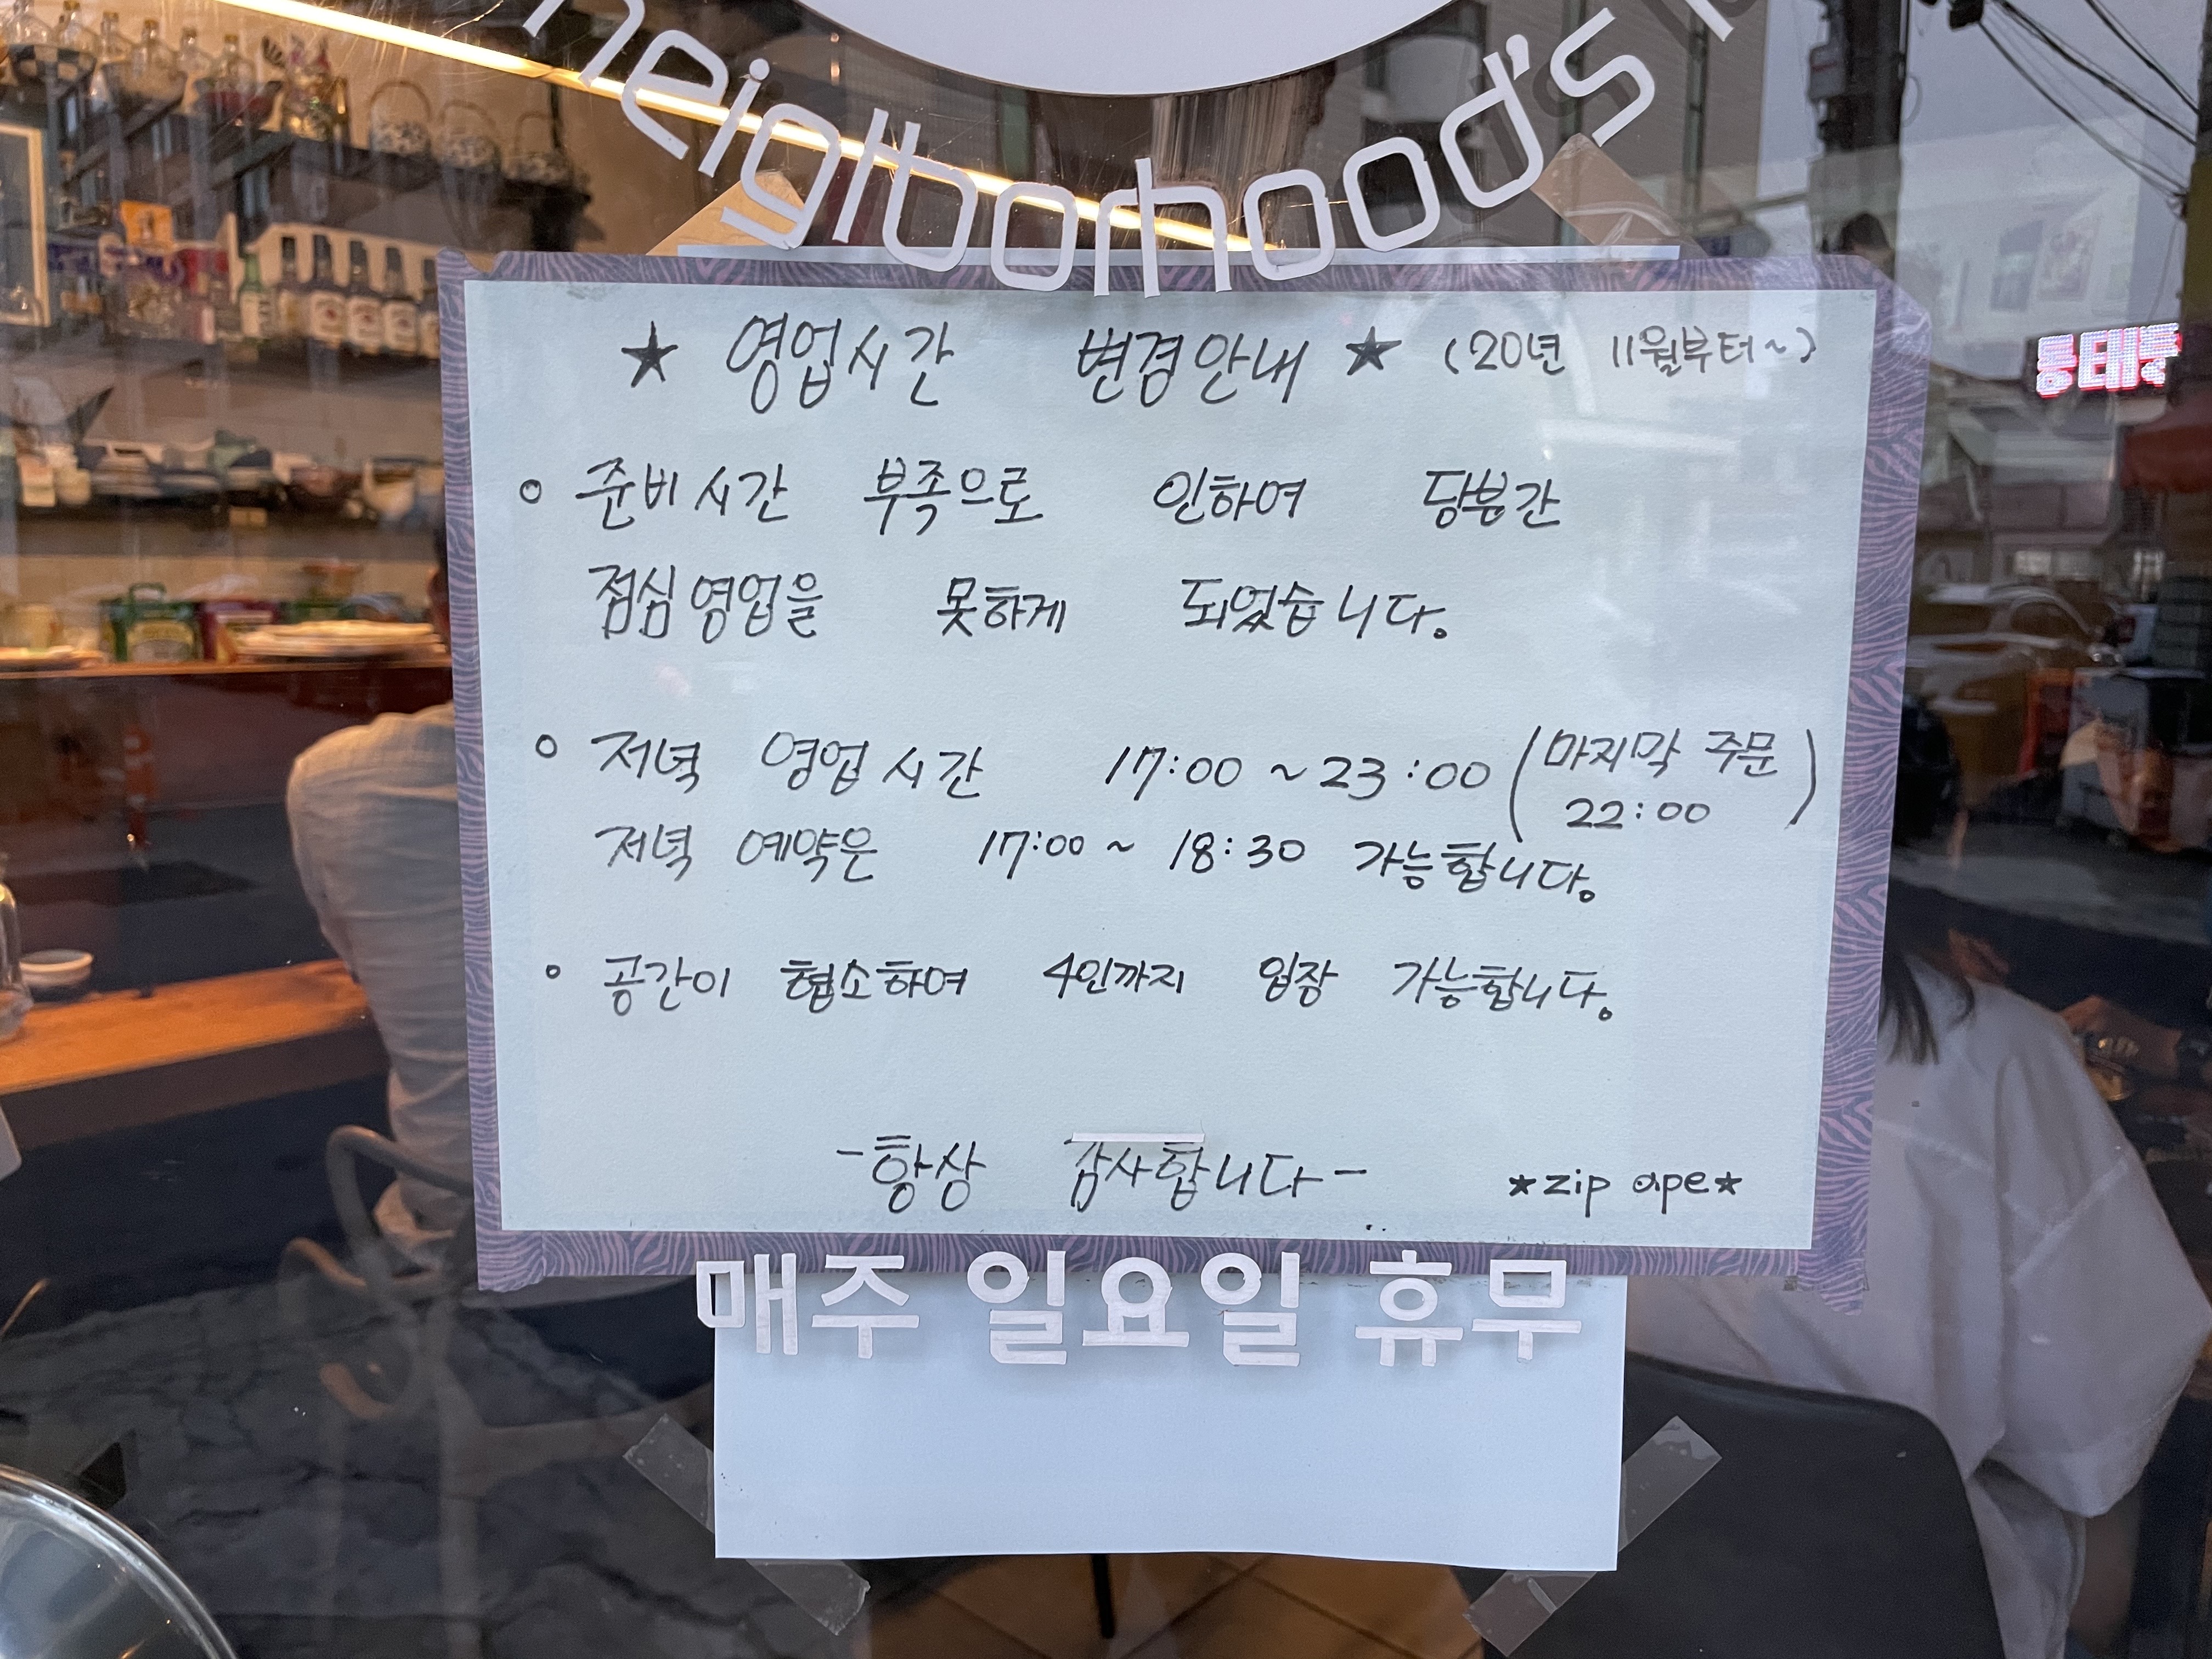 neighborhood's
★ 영업시간 변경안내 ★ (20년 11월부터~)
○ 준비시간 부족으로 인하여 당분간
점심영업을 못하게 되었습니다.
○ 저녁 영업시간 17:00 ~ 23:00 (마지막 주문 22:00)
저녁 예약은 17:00 ~ 18:30 가능합니다.
○ 공간이 협소하여 4인까지 입장 가능합니다.
-항상 감사합니다-
★zip ape★
매주 일요일 휴무